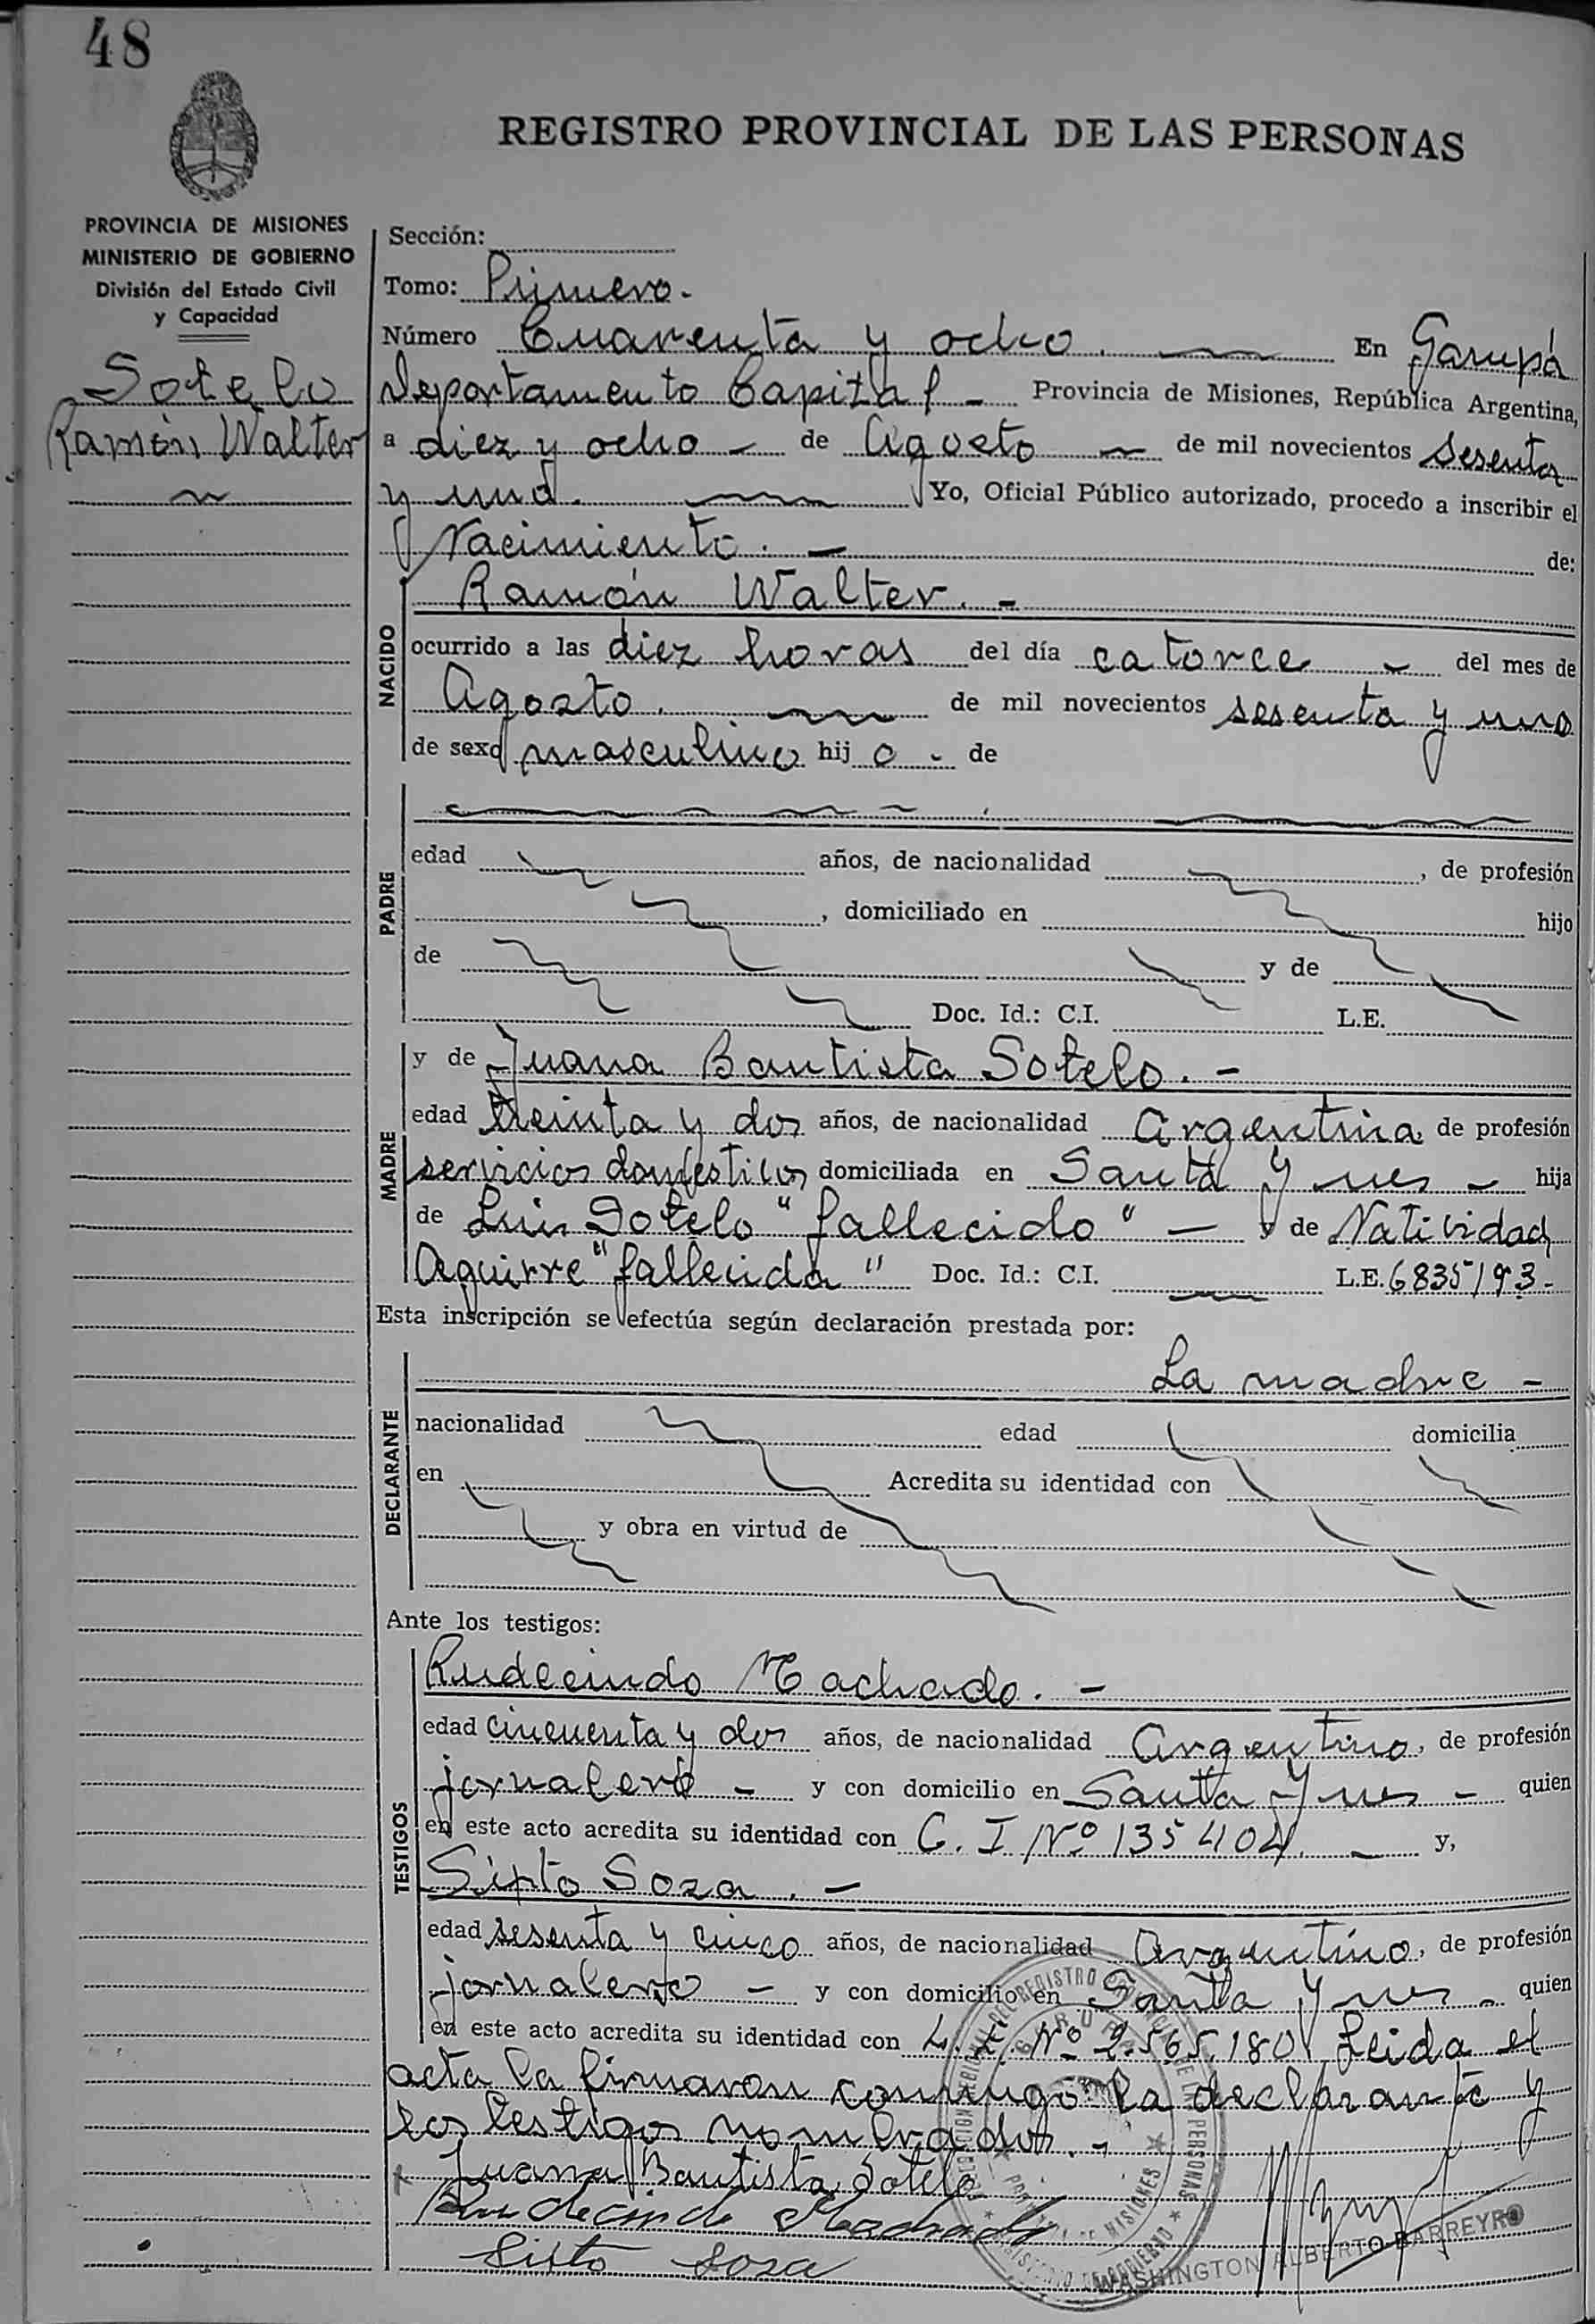 48
REGISTRO PROVINCIAL DE LAS PERSONAS
PROVINCIA DE MISIONES
MINISTERIO DE GOBIERNO
División del Estado Civil
y Capacidad
Sotelo
Ramón Walter
Sección:
Tomo: Primero.
Número Cuarenta y ocho. En Garupá
Departamento Capital - Provincia de Misiones, República Argentina,
a diez y ocho - de Agosto de mil novecientos sesenta
y uno. Yo, Oficial Público autorizado, procedo a inscribir el
Nacimiento. - de:
NACIDO
Ramón Walter. -
ocurrido a las diez horas del día catorce - del mes de
Agosto. de mil novecientos sesenta y uno
de sexo masculino hij o - de
PADRE
edad años, de nacionalidad , de profesión
, domiciliado en hijo
de y de
Doc. Id.: C.I. L.E.
MADRE
y de Juana Bautista Sotelo. -
edad treinta y dos años, de nacionalidad Argentina, de profesión
servicios domésticos domiciliada en Santa Ynes - hija
de Luis Sotelo "fallecido" - y de Natividad
Aguirre "fallecida" Doc. Id.: C.I. L.E. 6835193-
Esta inscripción se efectúa según declaración prestada por:
DECLARANTE
La madre -
nacionalidad edad domicilia
en Acredita su identidad con
y obra en virtud de
Ante los testigos:
TESTIGOS
Rudecindo Machado. -
edad cincuenta y dos años, de nacionalidad Argentino, de profesión
jornalero - y con domicilio en Santa Ynes - quien
en este acto acredita su identidad con C. I Nº 135404. - y,
Sixto Soza. -
edad sesenta y cinco años, de nacionalidad Argentino, de profesión
jornalero - y con domicilio en Santa Ynes - quien
en este acto acredita su identidad con L. E. Nº 2.565.180 Leida el
acta la firmaron conmigo la declarante y
los testigos nombrados. -
Juana Bautista Sotelo
Rudecindo Machado
Sisto Sosa
WASHINGTON ALBERTO BARREYRO